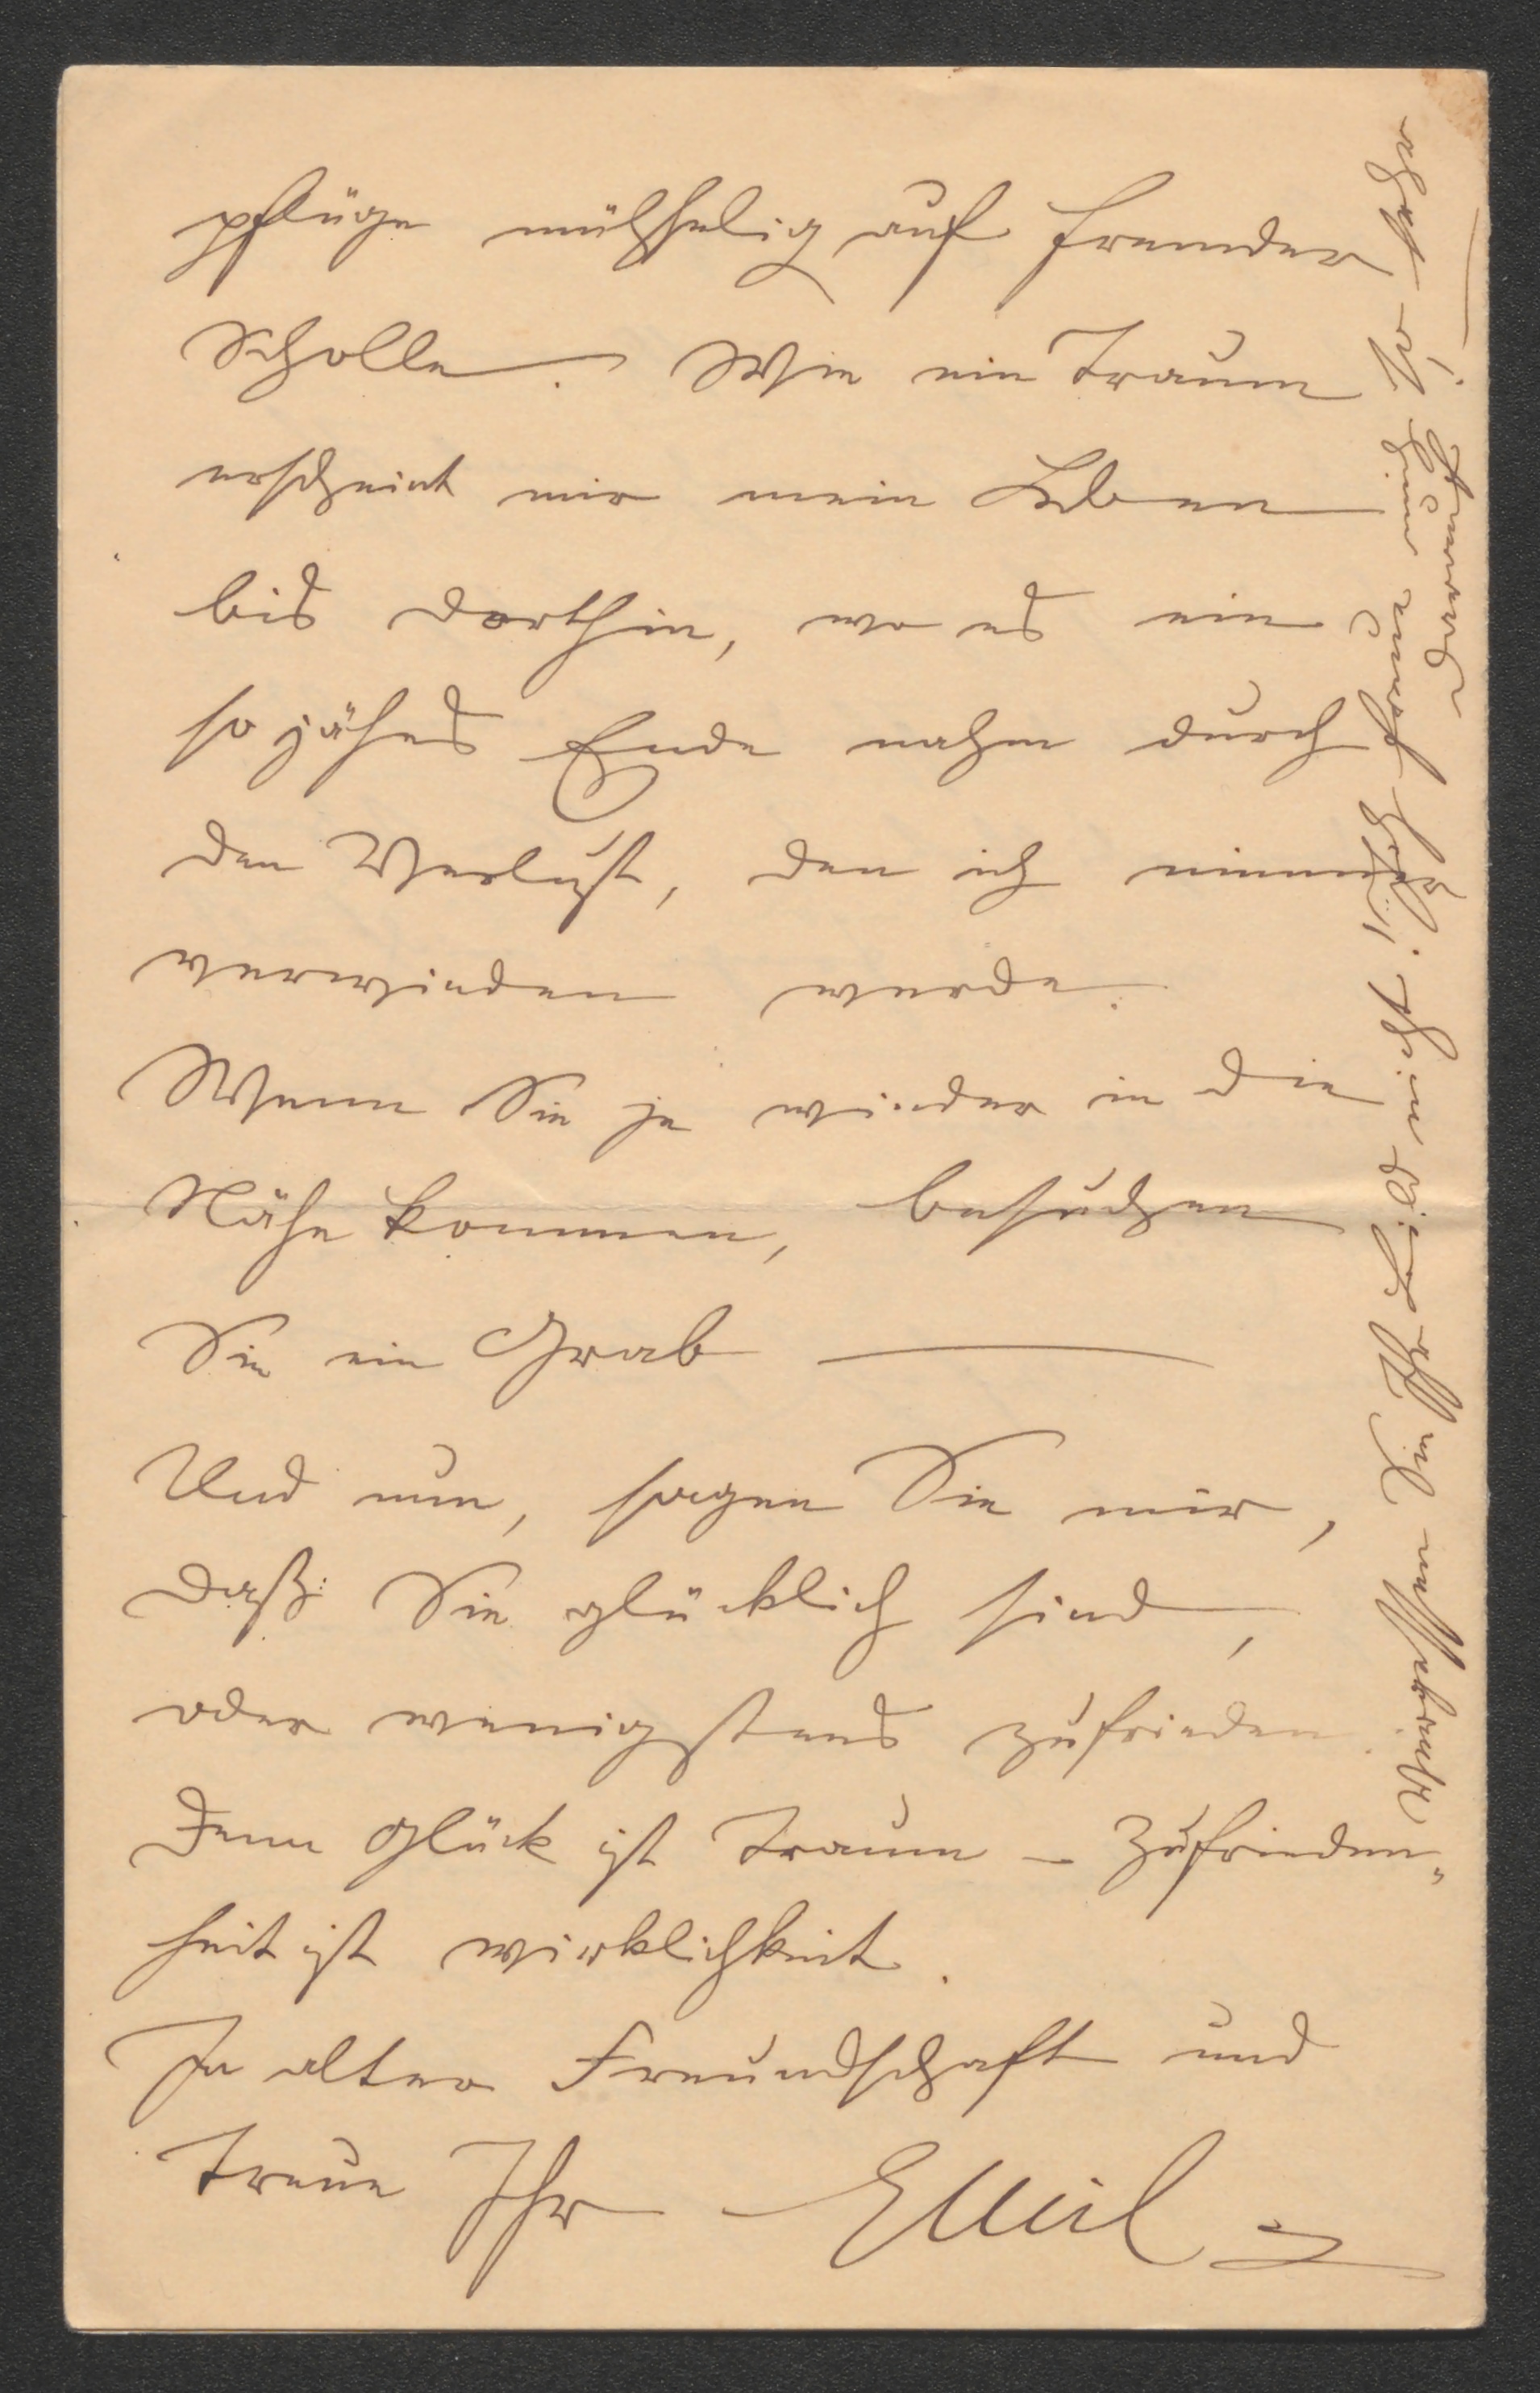 pflüge mühselig auf fremder
Scholle. Wie ein Traum
erscheint mir mein Leben
bis dorthin, wo es ein
so jähes Ende nahm durch
den Verlust, den ich nimmer
verwinden werde.
Wenn Sie je wieder in die
Nähe kommen, besuchen
Sie ein Grab —
Und nun, sagen Sie mir,
daß Sie glücklich sind,
oder wenigstens zufrieden.
Denn Glück ist Traum – Zufrieden-
heit ist Wirklichkeit.
In alter Freundschaft und
Treue Ihr Emil
Vergessen Sie
nicht